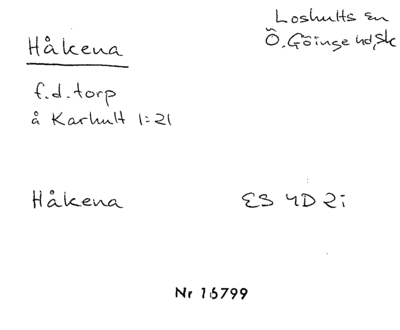 Håkena
Loshults sn
Ö. Göinge hd, Sk
f.d. torp
å Karhult 1:21
Håkena
ES 4D 2i
Nr 16799